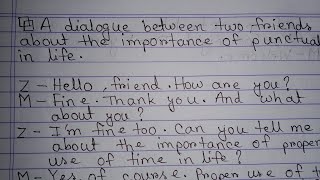 A dialogue between two friends
about the importance of punctual
in life.
Z - Hello, friend. How are you?
M - Fine. Thank you. And what
about you?
Z - I'm fine too. Can you tell me
about the importance of proper
use of time in life?
M - Yes of course. Proper use of t